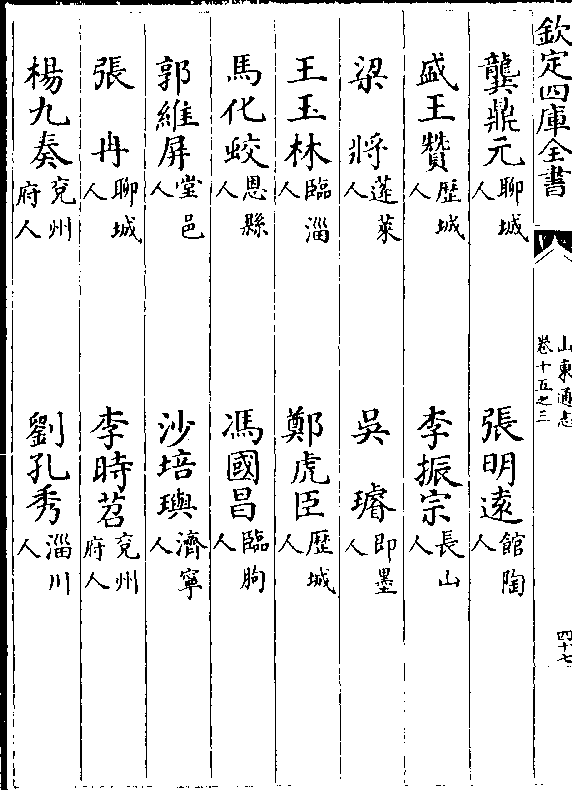 欽定四庫全書
山東通志
卷十五之三
四十七
龔鼎元聊城人 張明遠館陶人
盛王贊歷城人 李振宗長山人
梁將蓬萊人 吳璿即墨人
王玉林臨淄人 鄭虎臣歷城人
馬化蛟恩縣人 馮國昌臨朐人
郭維屏堂邑人 沙培璵濟寧人
張冉聊城人 李時苕兗州府人
楊九奏兗州府人 劉孔秀淄川人